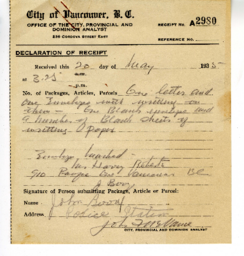 City of Vancouver, B.C.
OFFICE OF THE CITY, PROVINCIAL AND
DOMINION ANALYST
RECEIPT No. A2980
236 CORDOVA STREET EAST
REFERENCE No.
DECLARATION OF RECEIPT
Received this 20 day of May 1935
at 3.25
No. of Packages, Articles, Parcels. One letter and
one Envelope with writing on
them - One Blank envelope and
a Number of Blank sheets of
writing paper
Envelop marked
Mr Harry
910 East Vancouver BC
Signature of Person submitting Package, Article or Parcel:
Name John
Address Police Station
CITY, PROVINCIAL AND DOMINION ANALYST